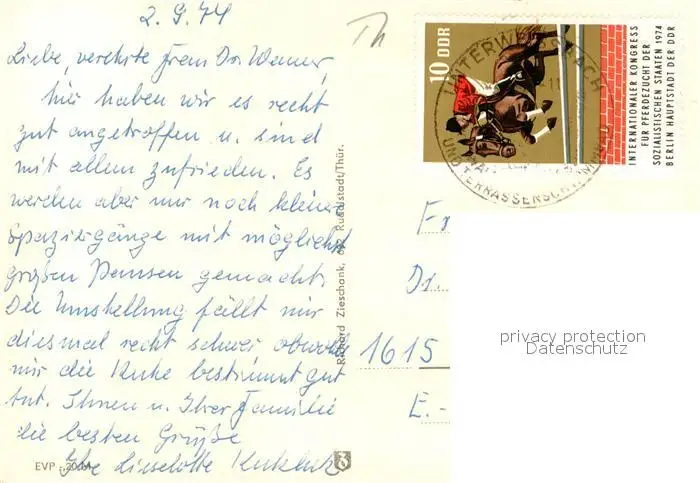 2. 9. 74
Liebe, verehrte Frau Dr. Wanner,
hier haben wir es recht
gut angetroffen u. sind
mit allem zufrieden. Es
werden aber nur noch kleine
Spaziergänge mit möglichst
großen Pausen gemacht.
Die Umstellung fällt mir
diesmal recht schwer obwohl
mir die Ruhe bestimmt gut
tut. Ihnen u. Ihrer Familie
die besten Grüße
Ihre Lieselotte
EVP -,20
Richard Zieschank, Rudolstadt/Thür.
Th
10 DDR
INTERNATIONALER KONGRESS
FÜR PFERDEZUCHT DER
SOZIALISTISCHEN STAATEN 1974
BERLIN HAUPTSTADT DER DDR
UNTERWEISSBACH
UND TERRASSENSCHWIMMBAD
Fr
Dr.
1615
E.-
privacy protection
Datenschutz